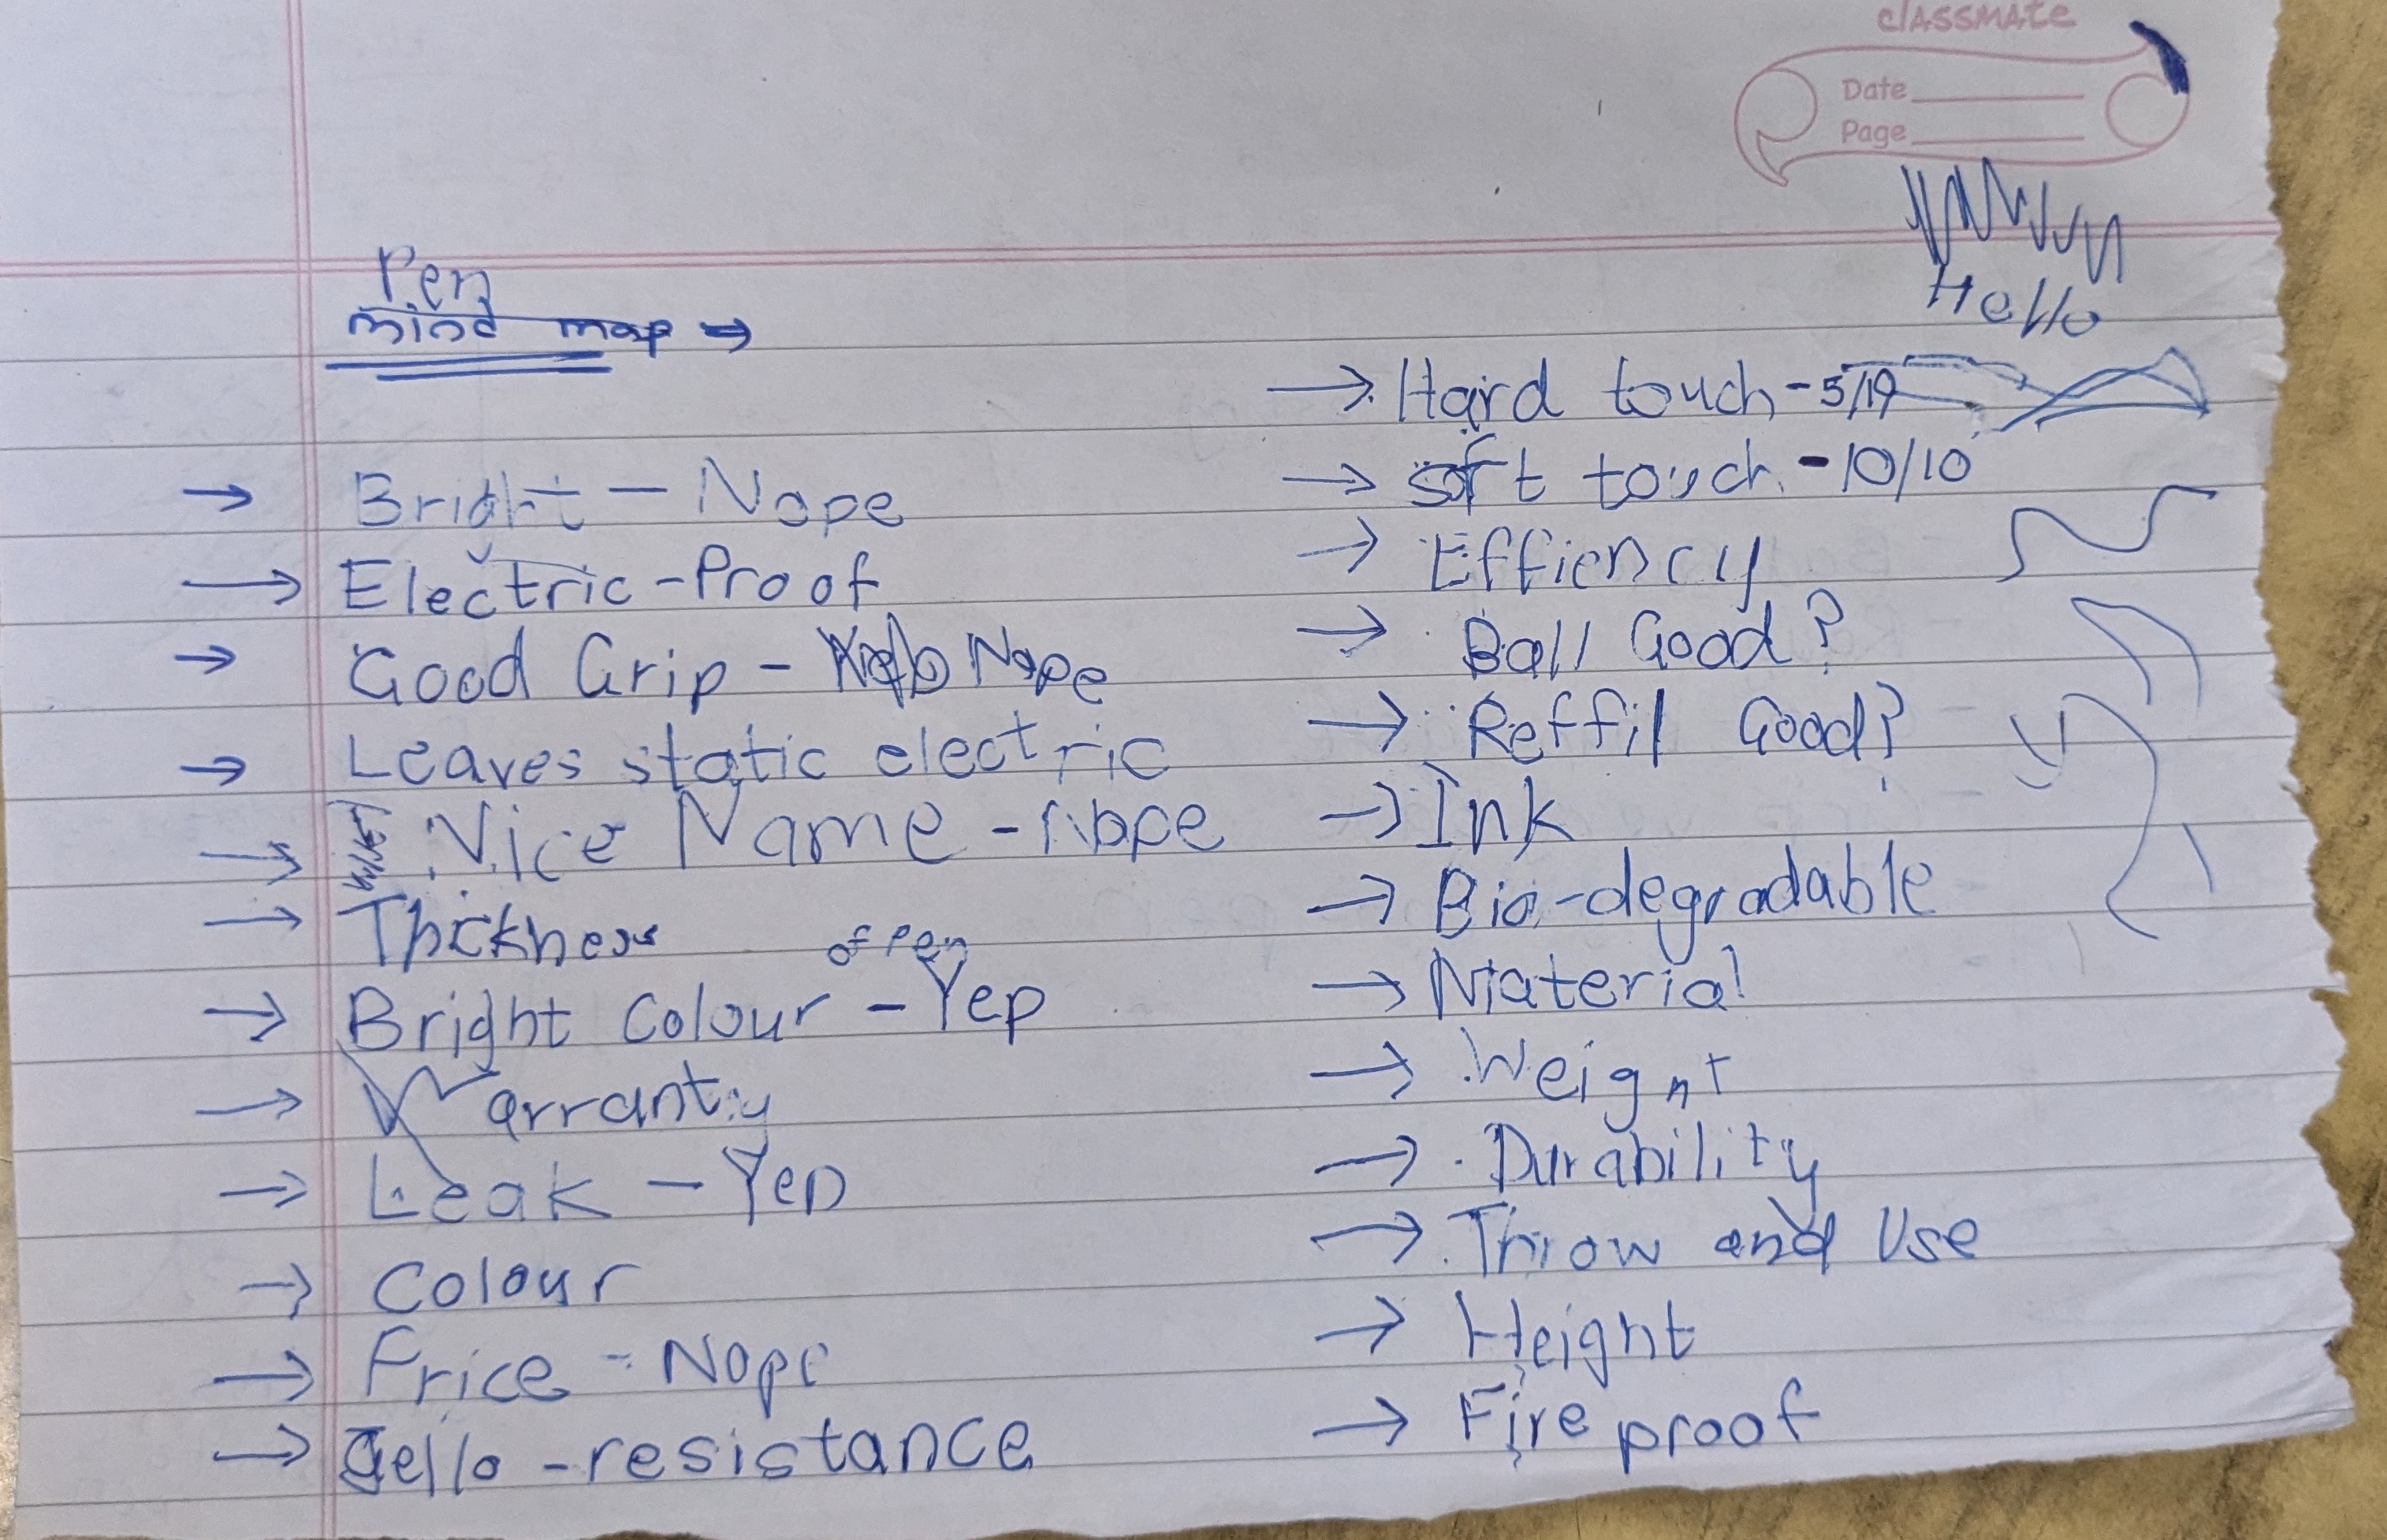 classmate
Date
Page
Hello
Pen
mind map →
→ Bright - Nope
→ Electric-Proof
→ Good Grip - Nope
→ Leaves static electric
→ Nice Name - Nope
→ Thickness
of Pen
→ Bright Colour - Yep
→ Warranty
→ Leak - Yep
→ Colour
→ Price - Nope
→ Jello-resistance
→ Hard touch - 5/19
→ soft touch - 10/10
→ Effiency
→ Ball Good?
→ Reffil Good?
→ Ink
→ Bio-degradable
→ Material
→ Weight
→ Durability
→ Throw and Use
→ Height
→ Fire proof